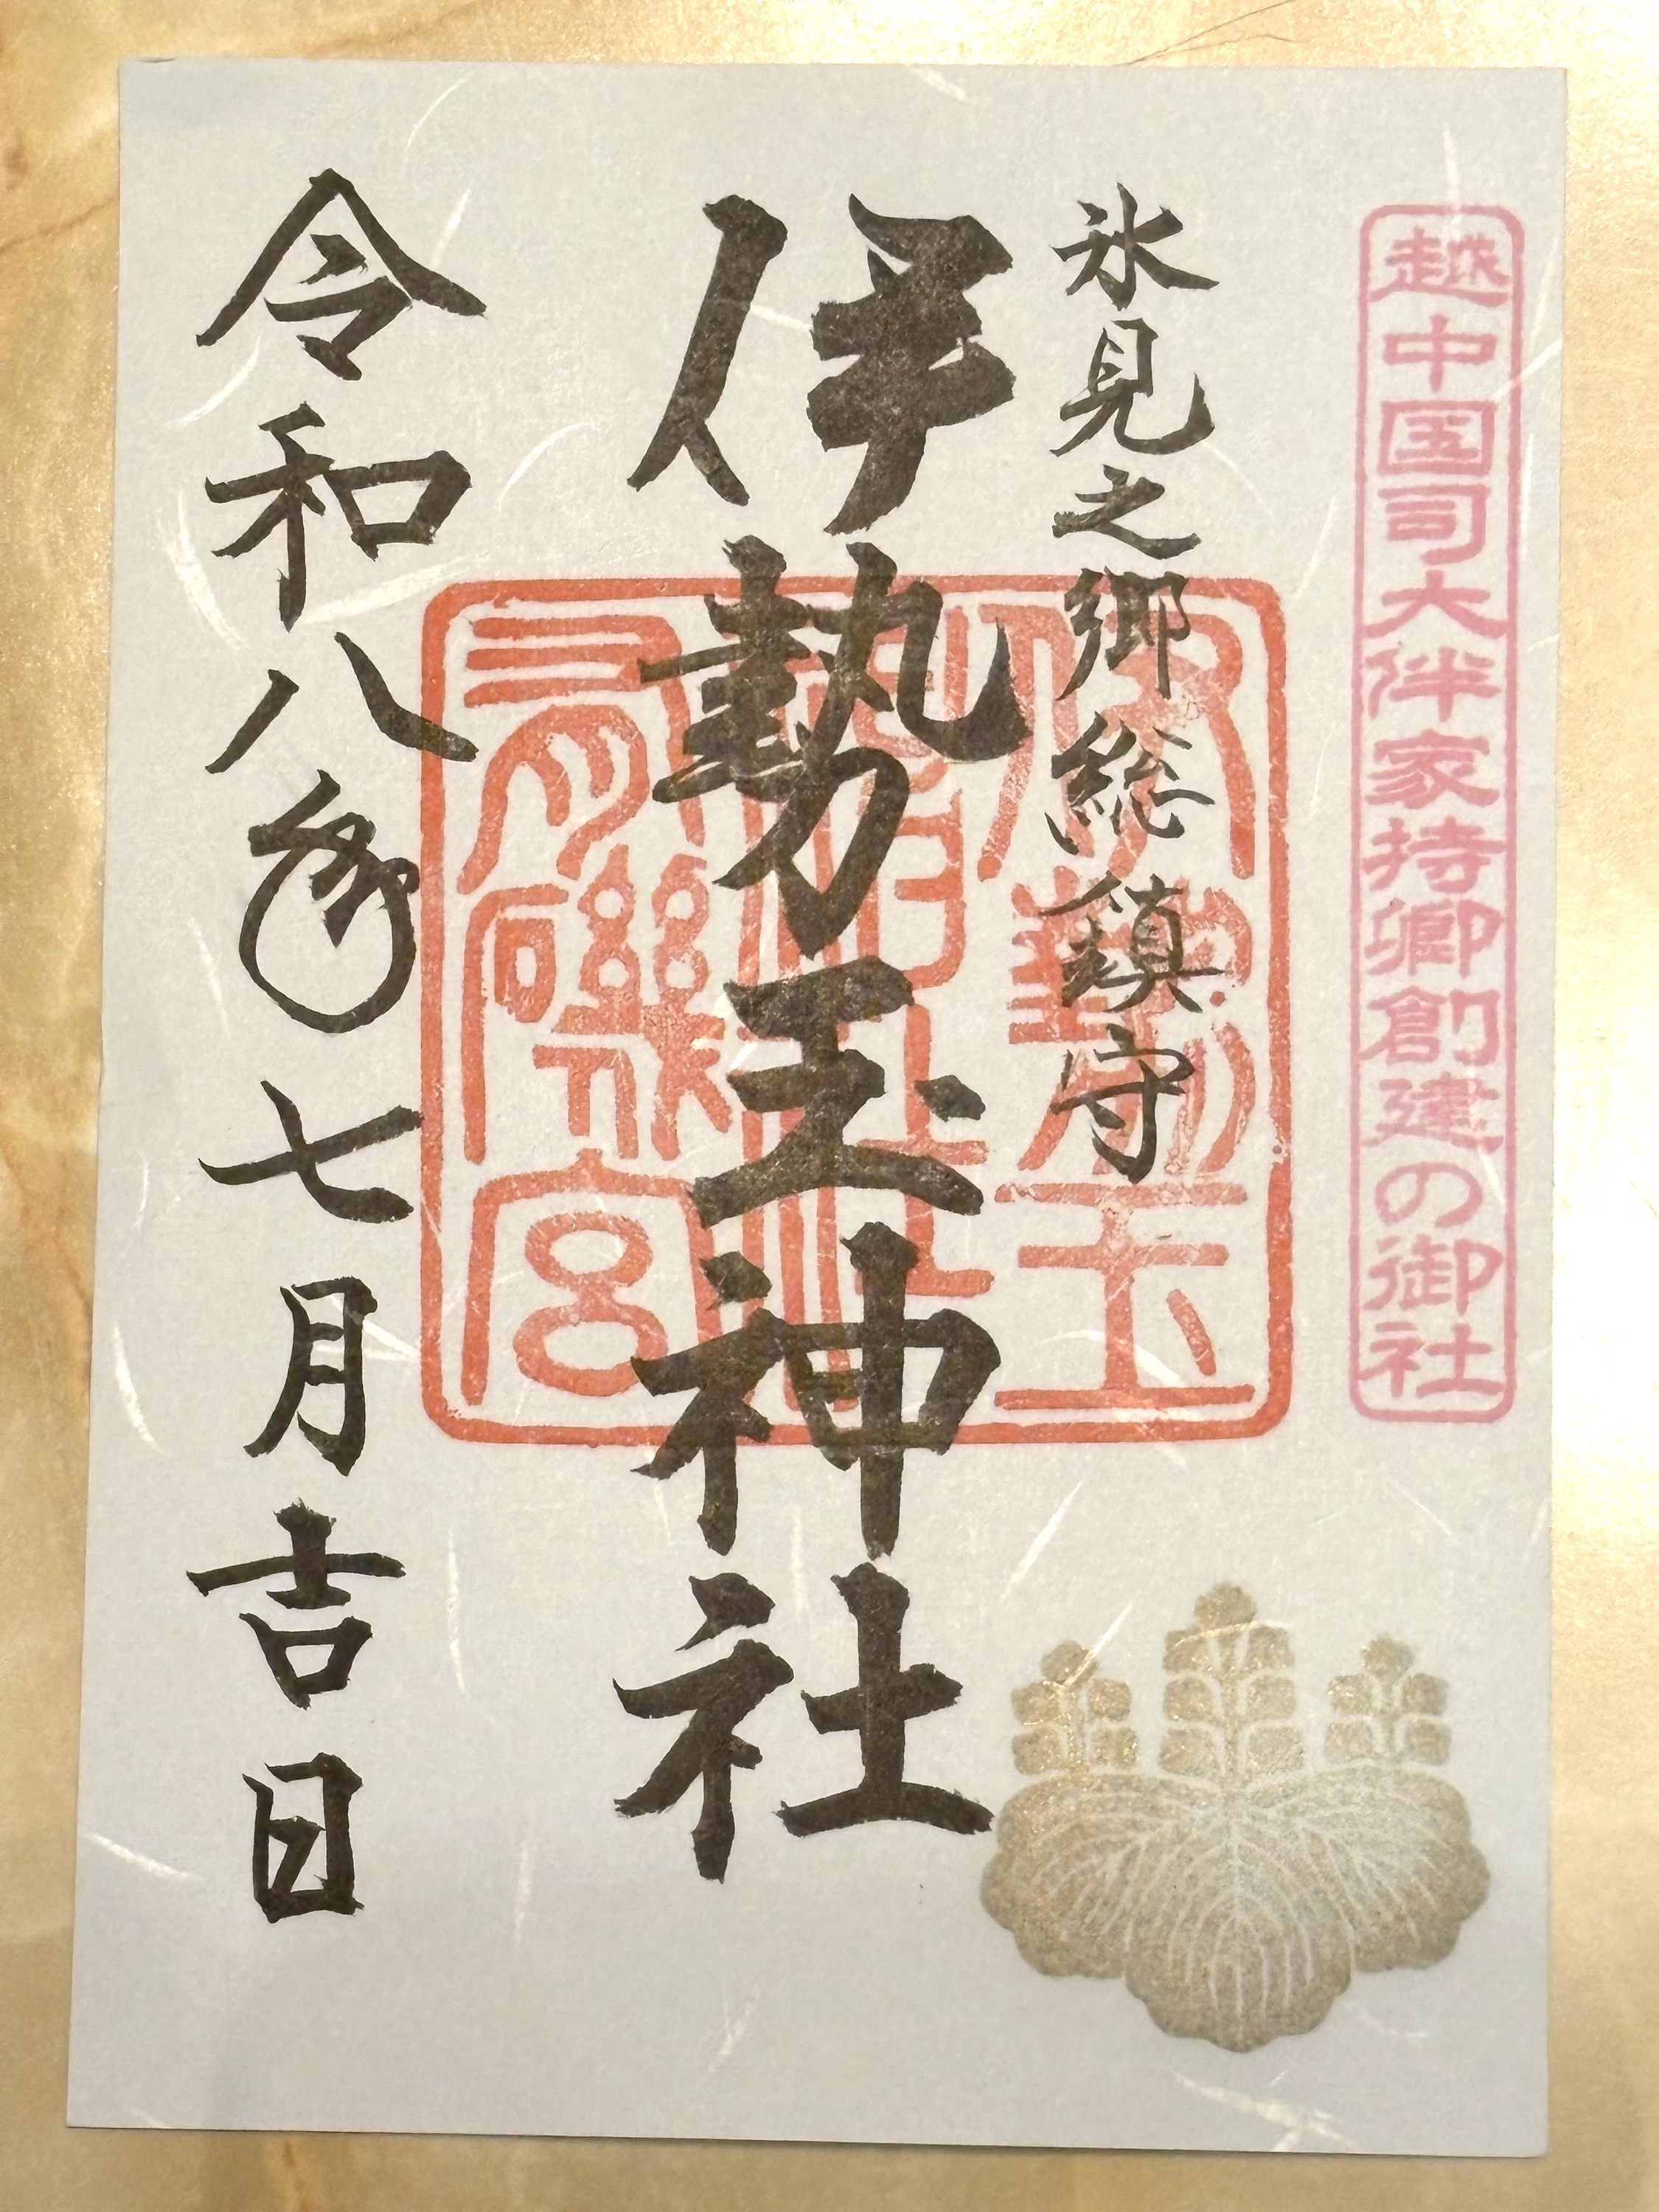 越中国司大伴家持卿創建の御社
氷見之郷総鎮守
伊勢玉神社
伊勢玉
有磯宮
令和八年七月吉日